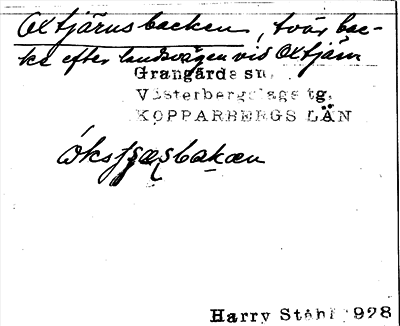 Oxtjärnsbacken, tvär bac-
ke efter landsvägen vid Oxtjärn
Grangärde sn,
Västerbergslags tg.
KOPPARBERGS LÄN
Harry Ståhl 1928